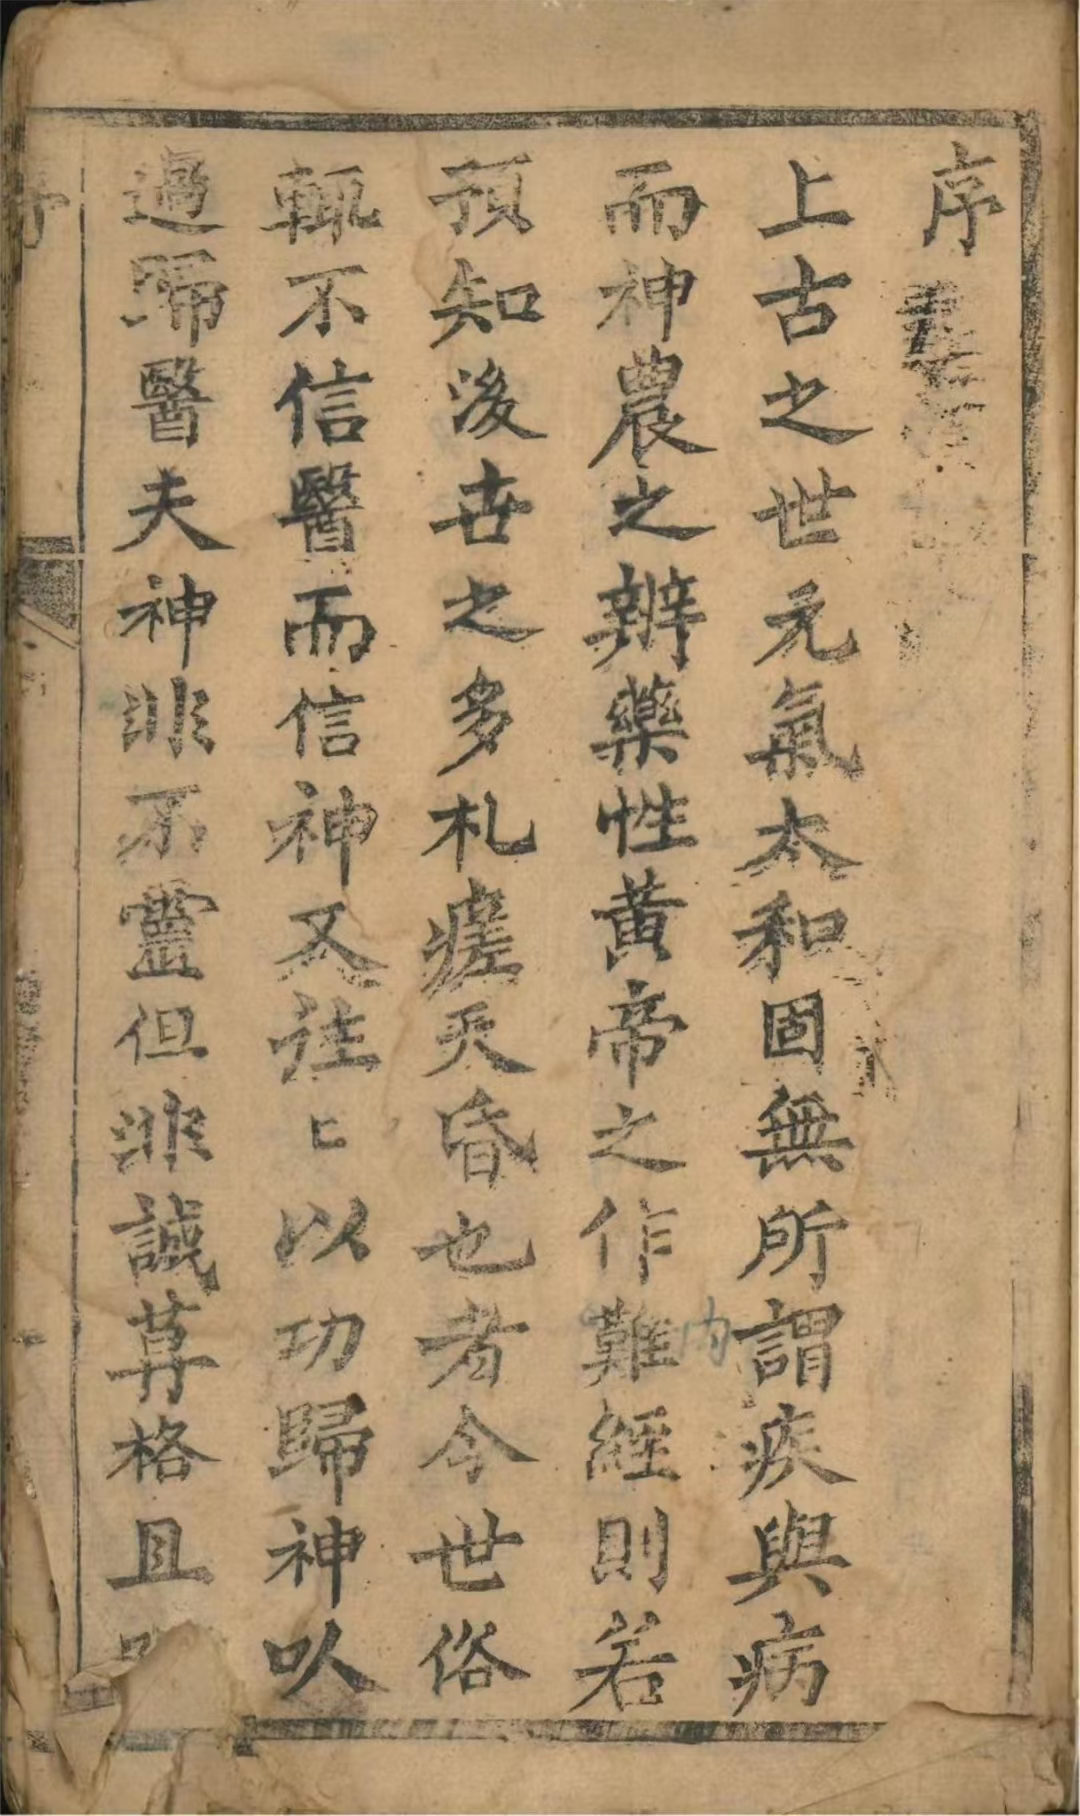 序
上古之世元氣太和固無所謂疾與病
而神農之辨藥性黃帝之作難經則若
內
預知後世之多札瘥夭昏也者今世俗
輒不信醫而信神又往〻以功歸神以
過歸醫夫神非不靈但非誠莫格且